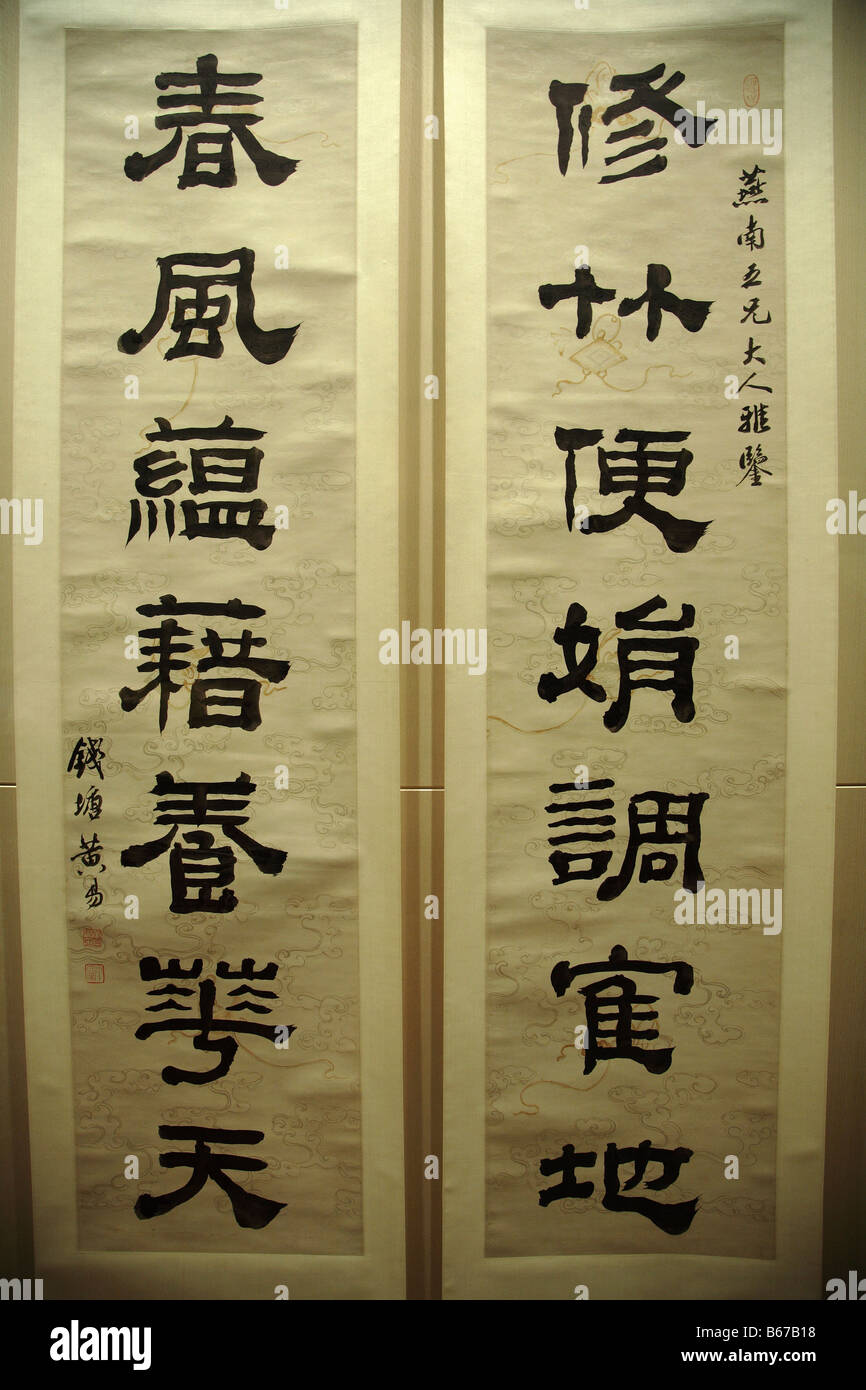 修竹便娟調寉地
燕南五兄大人雅鑒
春風藴藉養華天
錢塘黄易
alamy
Image ID: B67B18
www.alamy.com